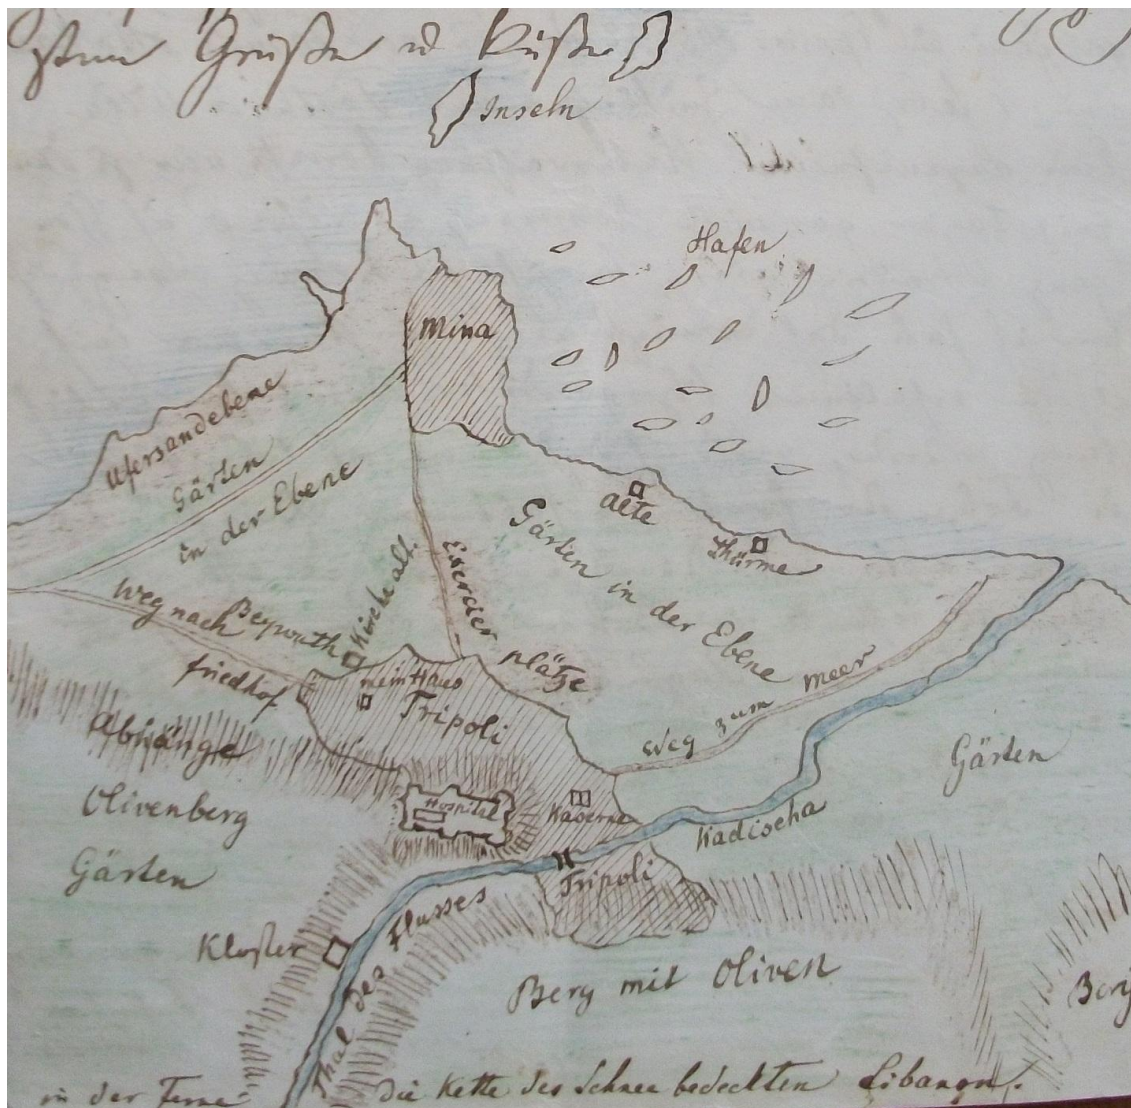 Grüße u Küsse
Inseln
Hafen
Mina
Ufersandebene
Gärten
in der Ebene
alte
Thürme
Gärten in der Ebene
Exercier
plätze
Kirche alt.
Weg nach
Beyruth
friedhof
mein Haus
Tripoli
Weg zum Meer
Abhänge
Gärten
Olivenberg
Hospital
Kaserne
Kadischa
Gärten
Tripoli
Kloster
Thal des Flusses
Berg mit Oliven
Berg
in der Ferne die Kette des Schnee bedeckten Libanon.